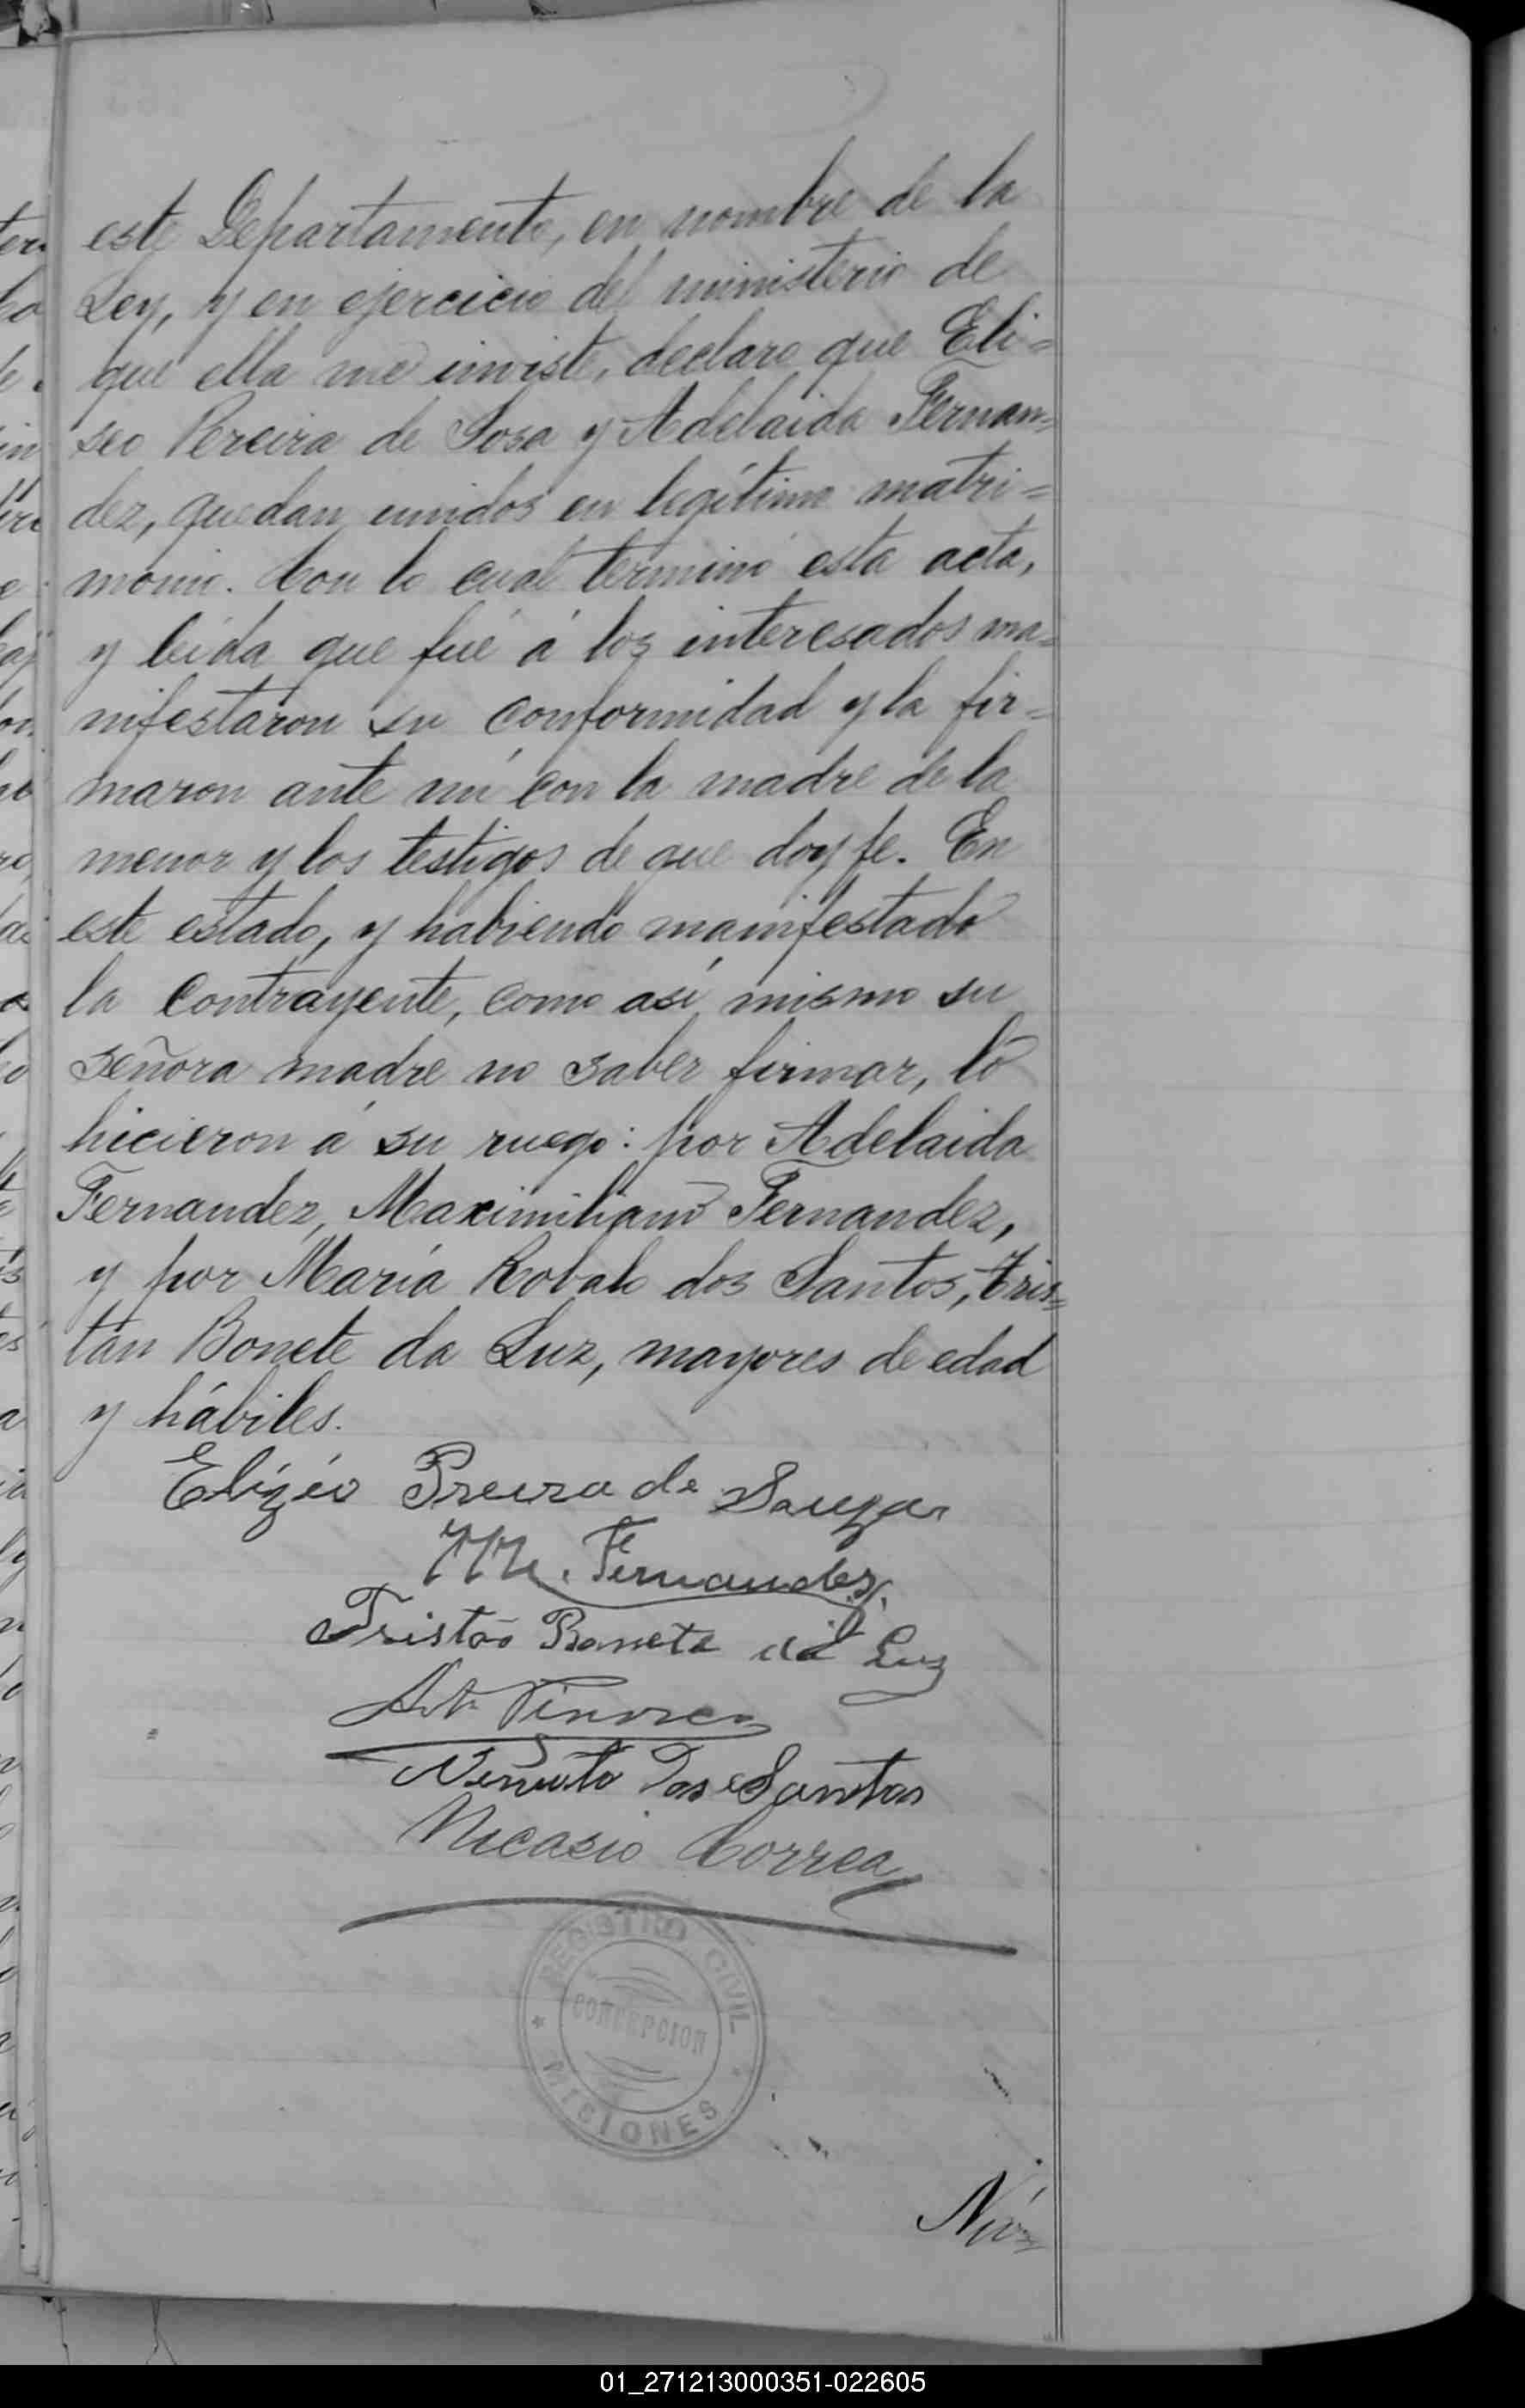 este Departamento, en nombre de la
Ley, y en ejercicio del ministerio de
que ella me inviste, declaro que Eli=
seo Pereira de Sosa y Adelaida Fernan=
dez, quedan unidos en legítimo matri=
monio. Con lo cual terminó esta acta,
y leida que fué á los interesados ma=
nifestaron su conformidad y la fir=
maron ante mi con la madre de la
menor y los testigos de que doy fe. En
este estado, y habiendo manifestado
la contrayente, como así mismo su
señora madre no saber firmar, lo
hicieron á su ruego: por Adelaida
Fernandez, Maximiliano Fernandez,
y por María Robalo dos Santos, Tris=
tán Bonete da Luz, mayores de edad
y hábiles.
Elízéo Preira de Souza
M. Fernandez
Tristão Boneta da Luz
Dos Santos
Nicasio Correa
REGISTRO CIVIL
CONCEPCION
MISIONES
01_271213000351-022605